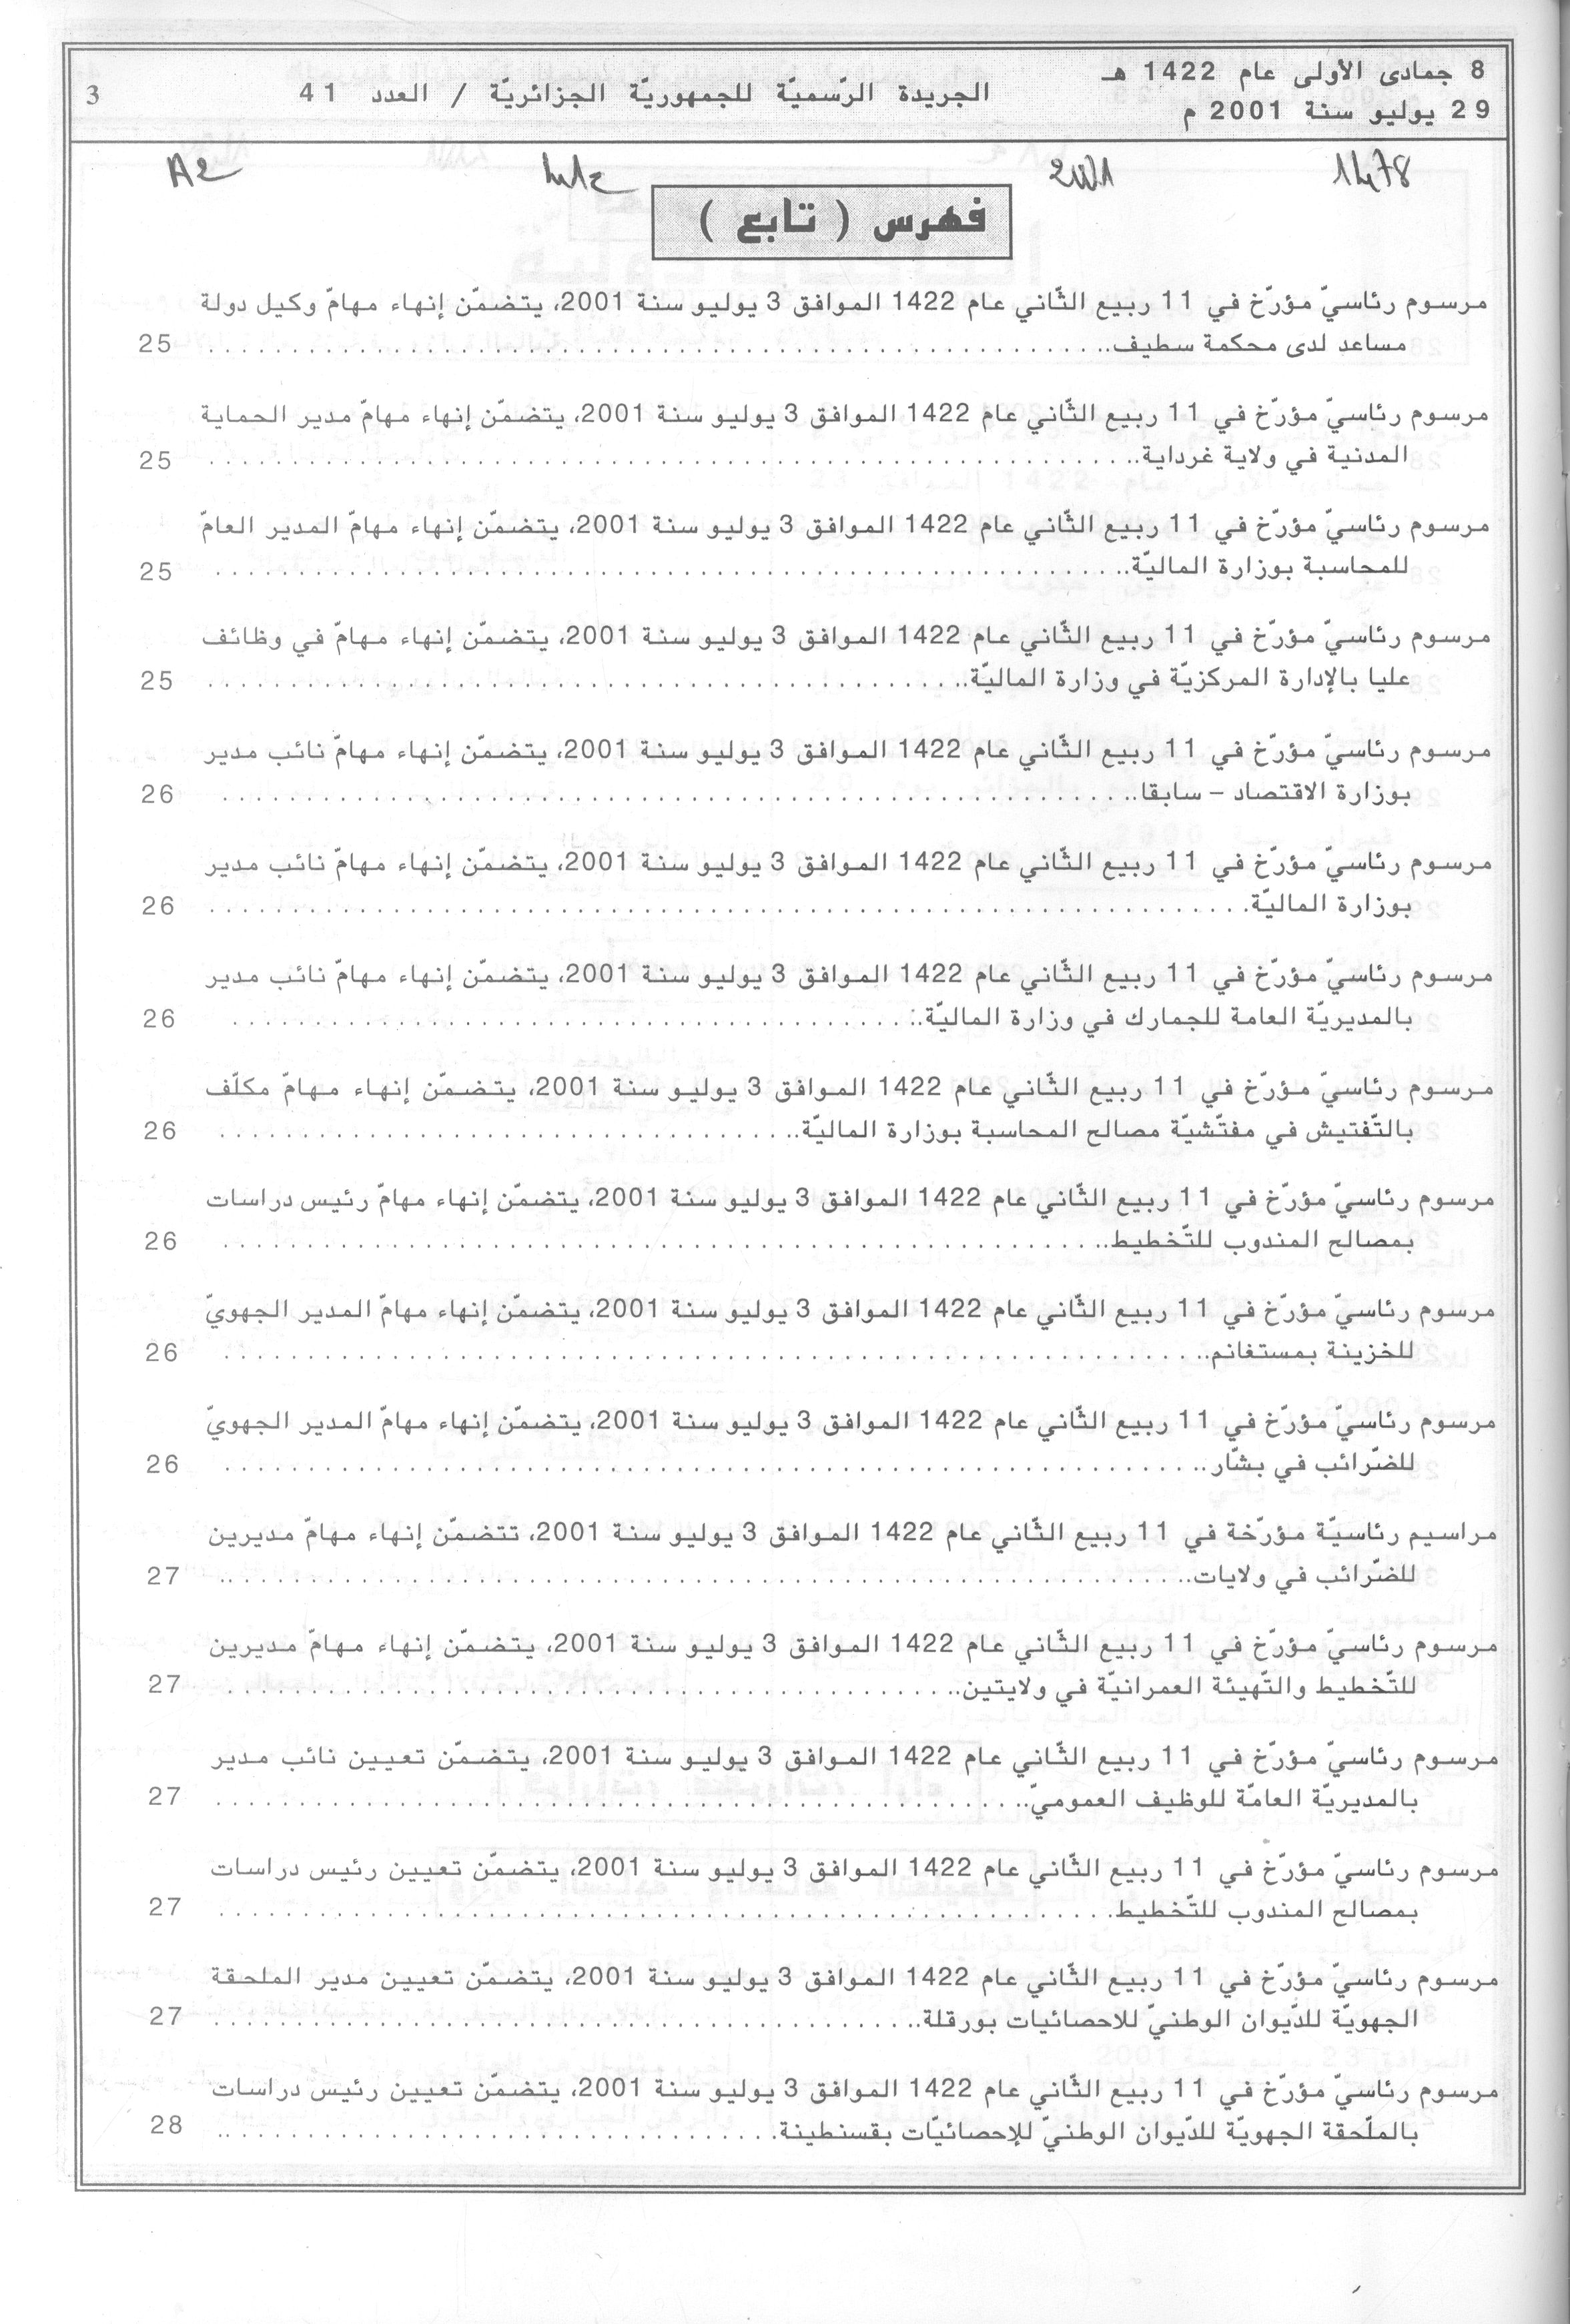 8 جمادى الأولى عام 1422 هـ
29 يوليو سنة 2001 م
الجريدة الرّسميّة للجمهوريّة الجزائريّة / العدد 41
3
1478
2001
A2
فهرس ( تابع )
مرسوم رئاسيّ مؤرّخ في 11 ربيع الثّاني عام 1422 الموافق 3 يوليو سنة 2001، يتضمّن إنهاء مهامّ وكيل دولة
مساعد لدى محكمة سطيف.. 25
مرسوم رئاسيّ مؤرّخ في 11 ربيع الثّاني عام 1422 الموافق 3 يوليو سنة 2001، يتضمّن إنهاء مهامّ مدير الحماية
المدنية في ولاية غرداية.. 25
مرسوم رئاسيّ مؤرّخ في 11 ربيع الثّاني عام 1422 الموافق 3 يوليو سنة 2001، يتضمّن إنهاء مهامّ المدير العامّ
للمحاسبة بوزارة الماليّة.. 25
مرسوم رئاسيّ مؤرّخ في 11 ربيع الثّاني عام 1422 الموافق 3 يوليو سنة 2001، يتضمّن إنهاء مهامّ في وظائف
عليا بالإدارة المركزيّة في وزارة الماليّة.. 25
مرسوم رئاسيّ مؤرّخ في 11 ربيع الثّاني عام 1422 الموافق 3 يوليو سنة 2001، يتضمّن إنهاء مهامّ نائب مدير
بوزارة الاقتصاد – سابقا.. 26
مرسوم رئاسيّ مؤرّخ في 11 ربيع الثّاني عام 1422 الموافق 3 يوليو سنة 2001، يتضمّن إنهاء مهامّ نائب مدير
بوزارة الماليّة. 26
مرسوم رئاسيّ مؤرّخ في 11 ربيع الثّاني عام 1422 الموافق 3 يوليو سنة 2001، يتضمّن إنهاء مهامّ نائب مدير
بالمديريّة العامة للجمارك في وزارة الماليّة.. 26
مرسوم رئاسيّ مؤرّخ في 11 ربيع الثّاني عام 1422 الموافق 3 يوليو سنة 2001، يتضمّن إنهاء مهامّ مكلّف
بالتّفتيش في مفتّشيّة مصالح المحاسبة بوزارة الماليّة.. 26
مرسوم رئاسيّ مؤرّخ في 11 ربيع الثّاني عام 1422 الموافق 3 يوليو سنة 2001، يتضمّن إنهاء مهامّ رئيس دراسات
بمصالح المندوب للتّخطيط.. 26
مرسوم رئاسيّ مؤرّخ في 11 ربيع الثّاني عام 1422 الموافق 3 يوليو سنة 2001، يتضمّن إنهاء مهامّ المدير الجهويّ
للخزينة بمستغانم.. 26
مرسوم رئاسيّ مؤرّخ في 11 ربيع الثّاني عام 1422 الموافق 3 يوليو سنة 2001، يتضمّن إنهاء مهامّ المدير الجهويّ
للضّرائب في بشّار.. 26
مراسيم رئاسيّة مؤرّخة في 11 ربيع الثّاني عام 1422 الموافق 3 يوليو سنة 2001، تتضمّن إنهاء مهامّ مديرين
للضّرائب في ولايات.. 27
مرسوم رئاسيّ مؤرّخ في 11 ربيع الثّاني عام 1422 الموافق 3 يوليو سنة 2001، يتضمّن إنهاء مهامّ مديرين
للتّخطيط والتّهيئة العمرانيّة في ولايتين.. 27
مرسوم رئاسيّ مؤرّخ في 11 ربيع الثّاني عام 1422 الموافق 3 يوليو سنة 2001، يتضمّن تعيين نائب مدير
بالمديريّة العامّة للوظيف العموميّ.. 27
مرسوم رئاسيّ مؤرّخ في 11 ربيع الثّاني عام 1422 الموافق 3 يوليو سنة 2001، يتضمّن تعيين رئيس دراسات
بمصالح المندوب للتّخطيط. 27
مرسوم رئاسيّ مؤرّخ في 11 ربيع الثّاني عام 1422 الموافق 3 يوليو سنة 2001، يتضمّن تعيين مدير الملحقة
الجهويّة للدّيوان الوطنيّ للاحصائيات بورقلة.. 27
مرسوم رئاسيّ مؤرّخ في 11 ربيع الثّاني عام 1422 الموافق 3 يوليو سنة 2001، يتضمّن تعيين رئيس دراسات
بالملّحقة الجهويّة للدّيوان الوطنيّ للإحصائيّات بقسنطينة. 28